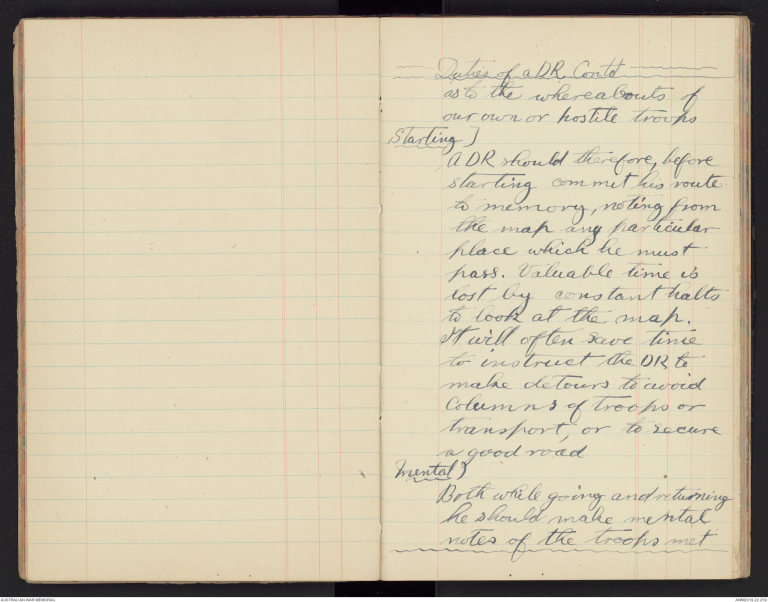 Duties of a DR Contd
as to the whereabouts of
our own or hostile troops
Starting }
A DR should therefore, before
starting commit his route
to memory, noting from
the map any particular
place which he must
pass. Valuable time is
lost by constant halts
to look at the map.
It will often save time
to instruct the DR to
make detours to avoid
columns of troops or
transport, or to secure
a good road
mental }
Both while going and returning
he should make mental
notes of the troops met
AUSTRALIAN WAR MEMORIAL